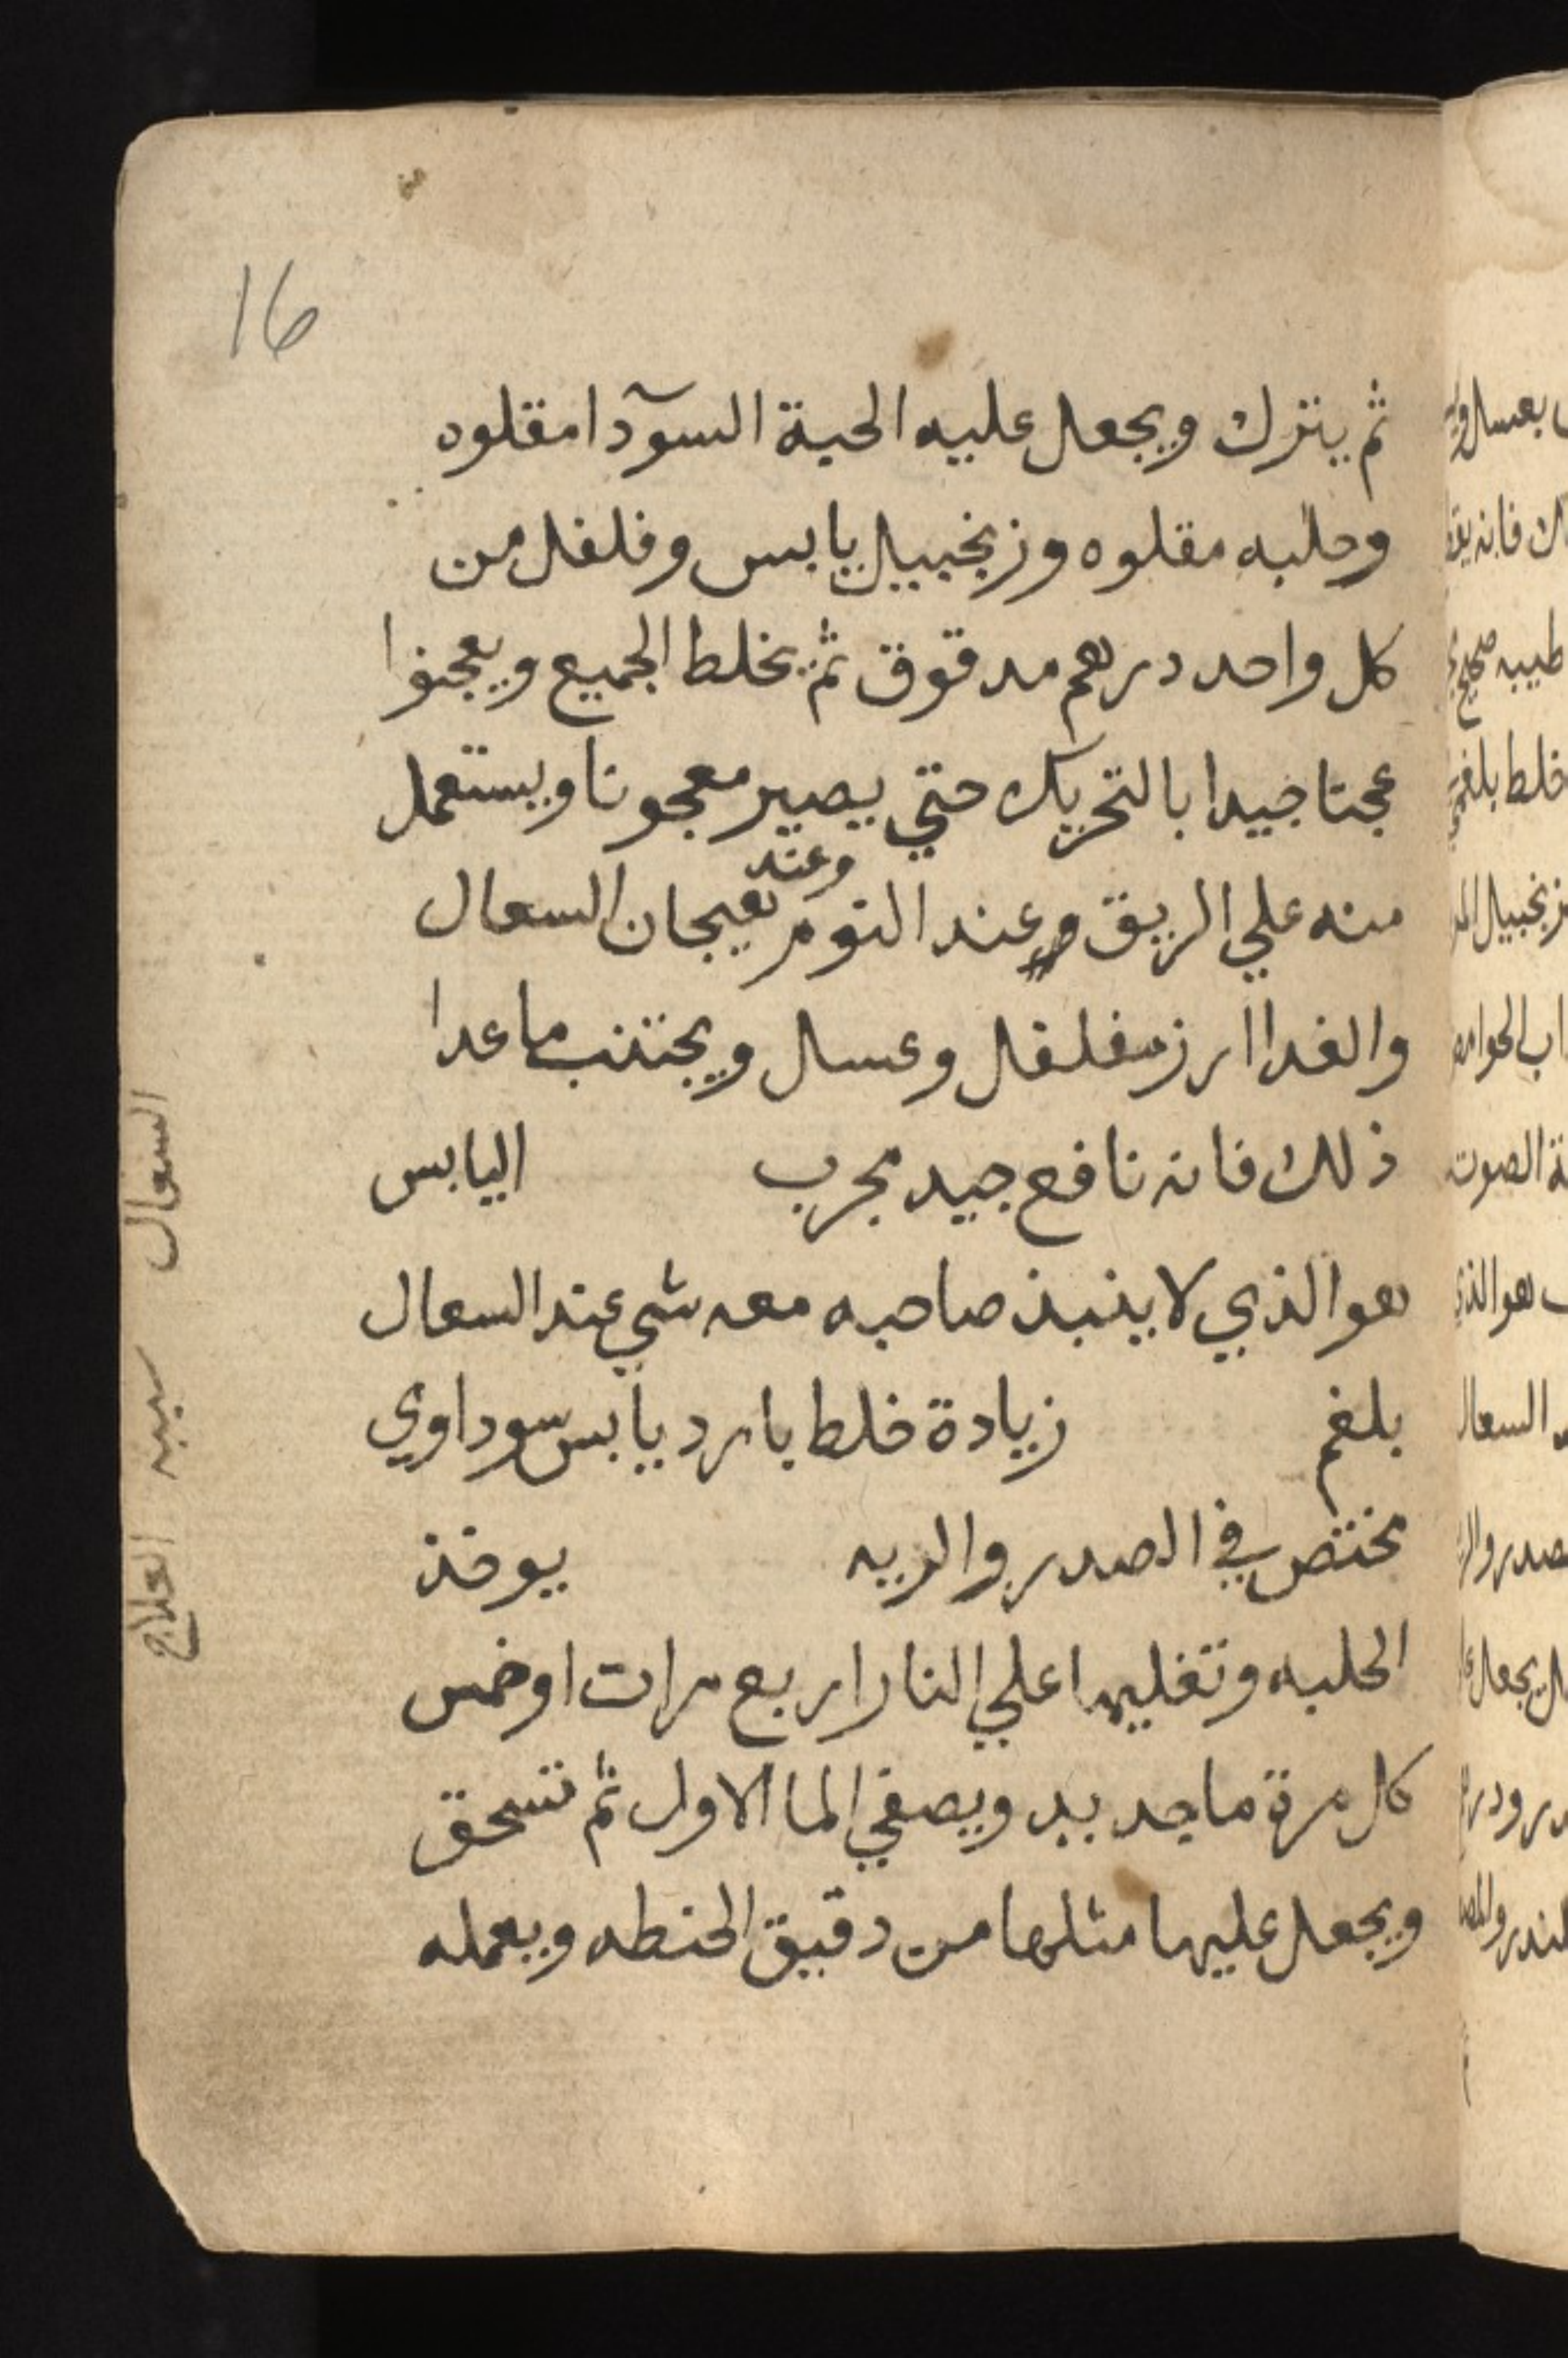 16
ثم ينزل ويجعل عليه الحبة السودا مقلوه
وحلبه مقلوه وزنجبيل يابس وفلفل من
كل واحد درهم مدقوق ثم يخلط الجميع ويعجنوا
عجنا جيدا بالتحريك حتي يصير معجونا ويستعمل
منه علي الريق وعند النوم وعند هيجان السعال
والغدا ارز مفلفل وعسل ويجتنب ما عدا
ذلك فانه نافع جيد مجرب اليابس
هو الذي لا ينبذ صاحبه معه شي عند السعال
بلغم زيادة خلط بارد يابس سوداوي
يختص في الصدر والريه يوخذ
الحلبه وتغليها علي النار اربع مرات او خمس
كل مرة ما جديد ويصفي الما الاول ثم تسحق
ويجعل عليها مثلها من دقيق الحنطه ويعمله
السعال
سببه
العلاج